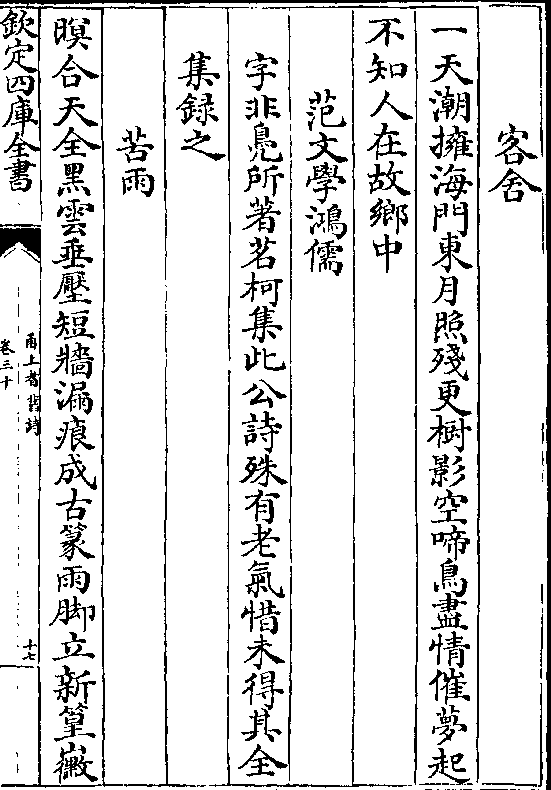 客舍
一天潮擁海門東月照殘更樹影空啼鳥盡情催夢起
不知人在故鄉中
范文學鴻儒
字非鳧所著茗柯集此公詩殊有老氣惜未得其全
集録之
苦雨
暝合天全黑雲垂壓短牆漏痕成古篆雨脚立新篁嶶
欽定四庫全書
甬上耆舊詩
卷三十
十七